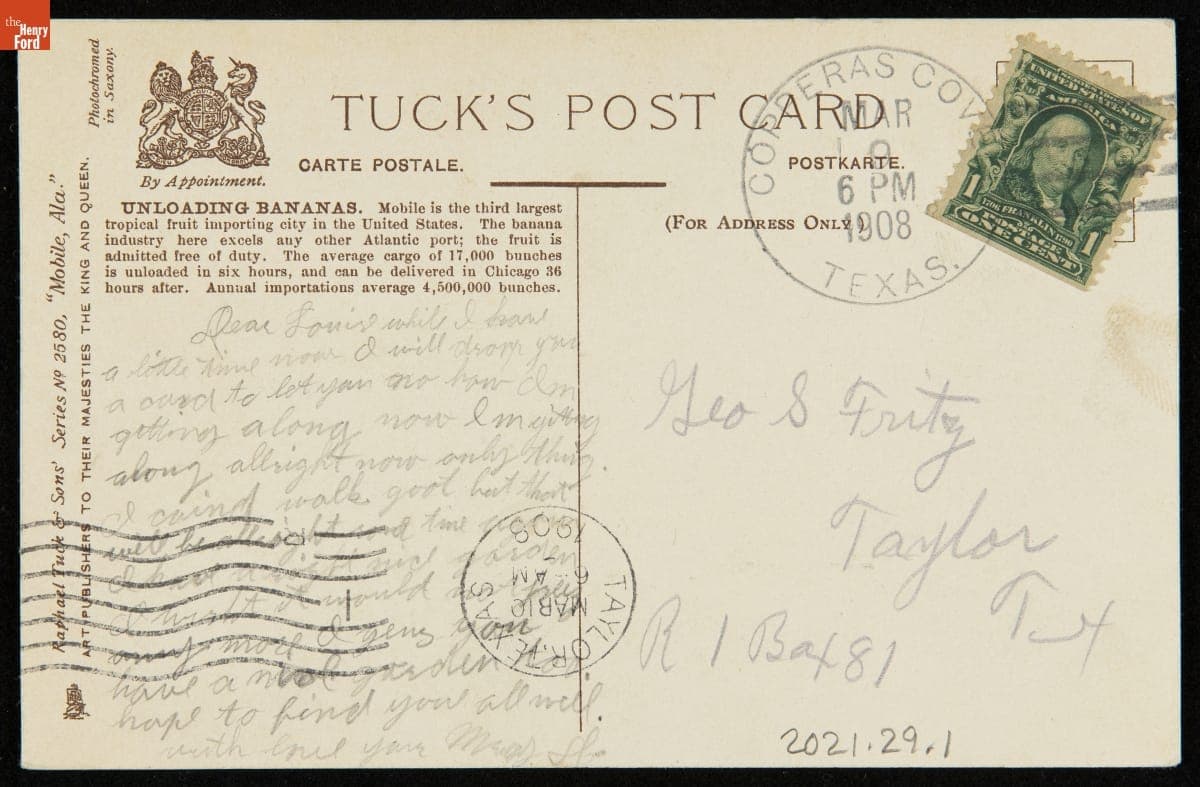 the
Henry
Ford
Photochromed
in Saxony.
By Appointment.
TUCK'S POST CARD
CARTE POSTALE.
POSTKARTE.
(FOR ADDRESS ONLY)
UNLOADING BANANAS. Mobile is the third largest
tropical fruit importing city in the United States. The banana
industry here excels any other Atlantic port; the fruit is
admitted free of duty. The average cargo of 17,000 bunches
is unloaded in six hours, and can be delivered in Chicago 36
hours after. Annual importations average 4,500,000 bunches.
Raphael Tuck & Sons' Series Nº 2580, "Mobile, Ala."
ART PUBLISHERS TO THEIR MAJESTIES THE KING AND QUEEN.
COPPERAS COV
MAR
9
6 PM
1908
TEXAS.
UNITED STATES OF
AMERICA
1706 FRANKLIN 1790
1 POSTAGE 1
ONE CENT
Dear Louise while I have
a little time now I will drop you
a card to let you no how I'm
getting along now I'm getting
along allright now only thing
I caind walk goot but that
will be allright and time
I have a right nice garden
I would not
any more I
have a garden
hope to find you all well.
with love your
TAYLOR, TEXAS
MAR 10
6 AM
1908
R
1
Geo S Fritz
Taylor
Tex
R 1 Box 81
2021.29.1